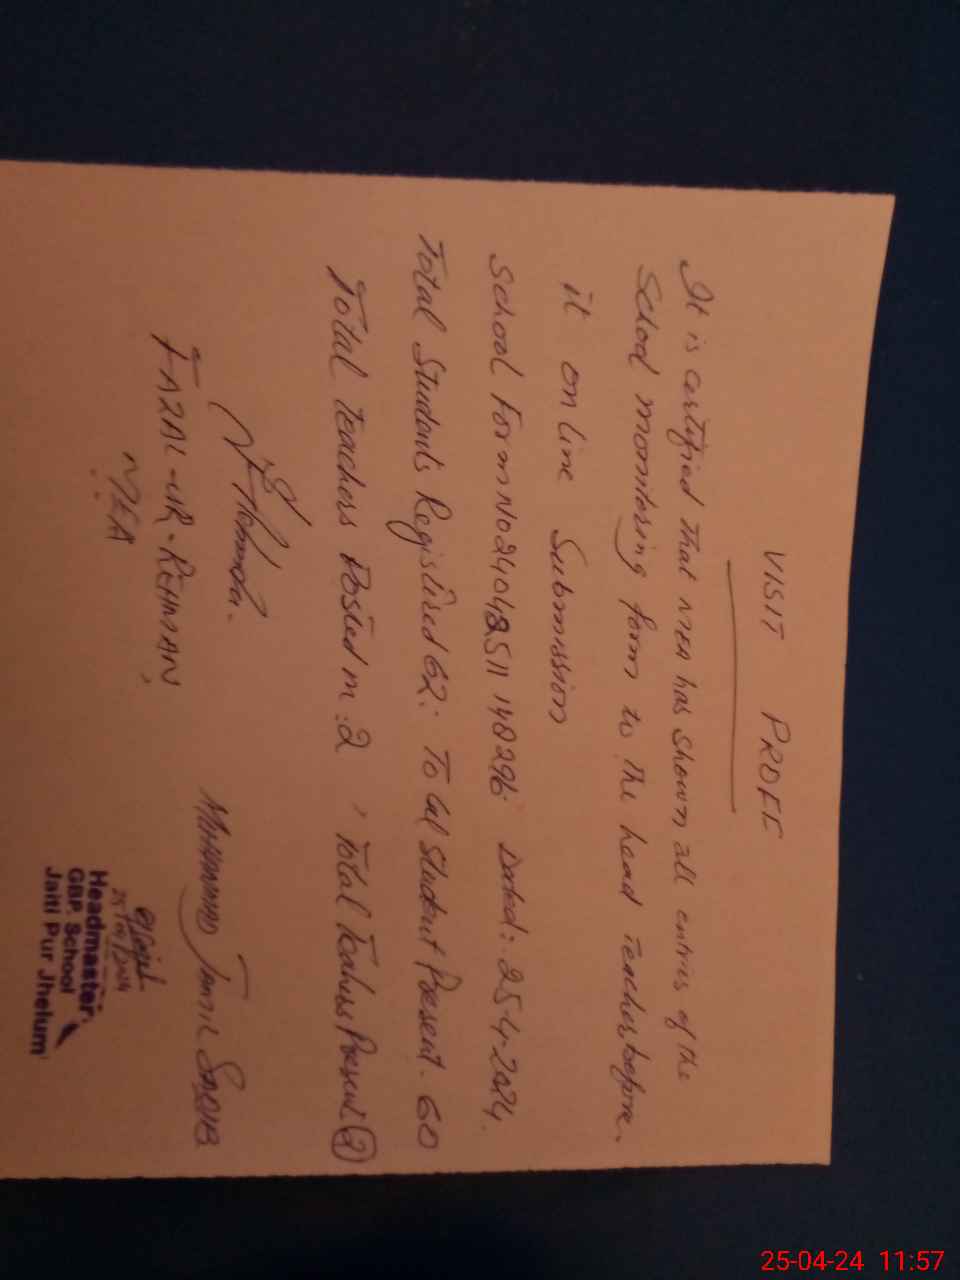 VISIT PROFF
It is certified that MEA has shown all entries of the
School monitoring form to the head Teacher, before.
it online Submission
School Form No Dated: 25-4-2024.
Total Students Registired 62: Total Student Present. 60
Total teachers Posted m:2, Total Teachers Present (2)
FAZAL-UR-REHMAN
MEA
MUHAMMAD
Headmaster,
GBP. School
Jaiti Pur Jhelum
25-04-24 11:57